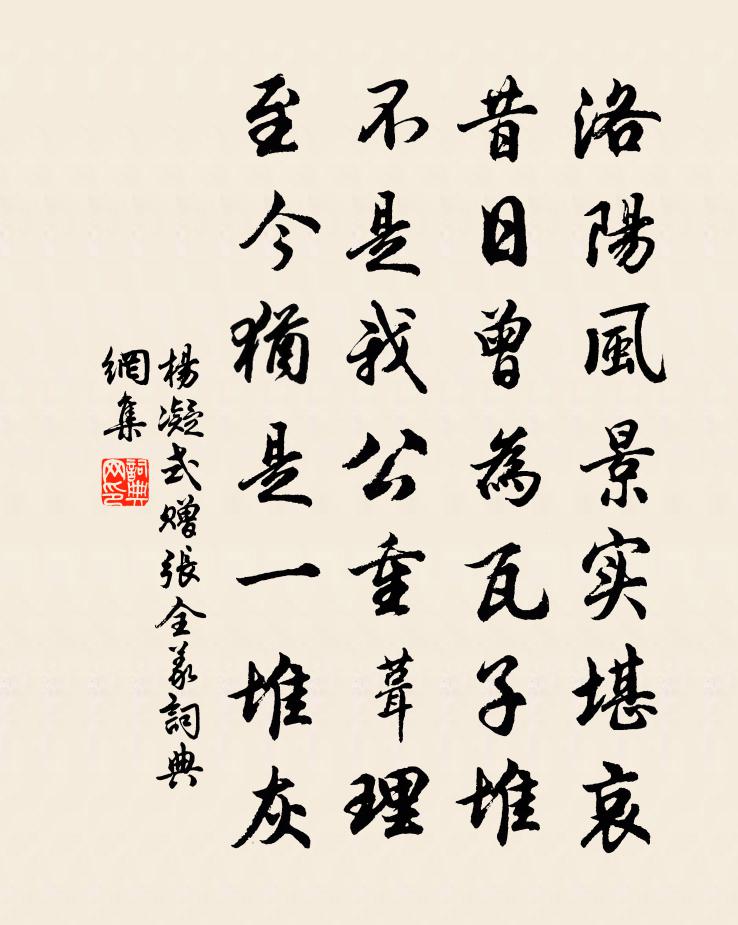 洛陽風景实堪哀
昔日曾為瓦子堆
不是我公重葺理
至今猶是一堆灰
楊凝式贈張全义詞典
網集
詞典網印